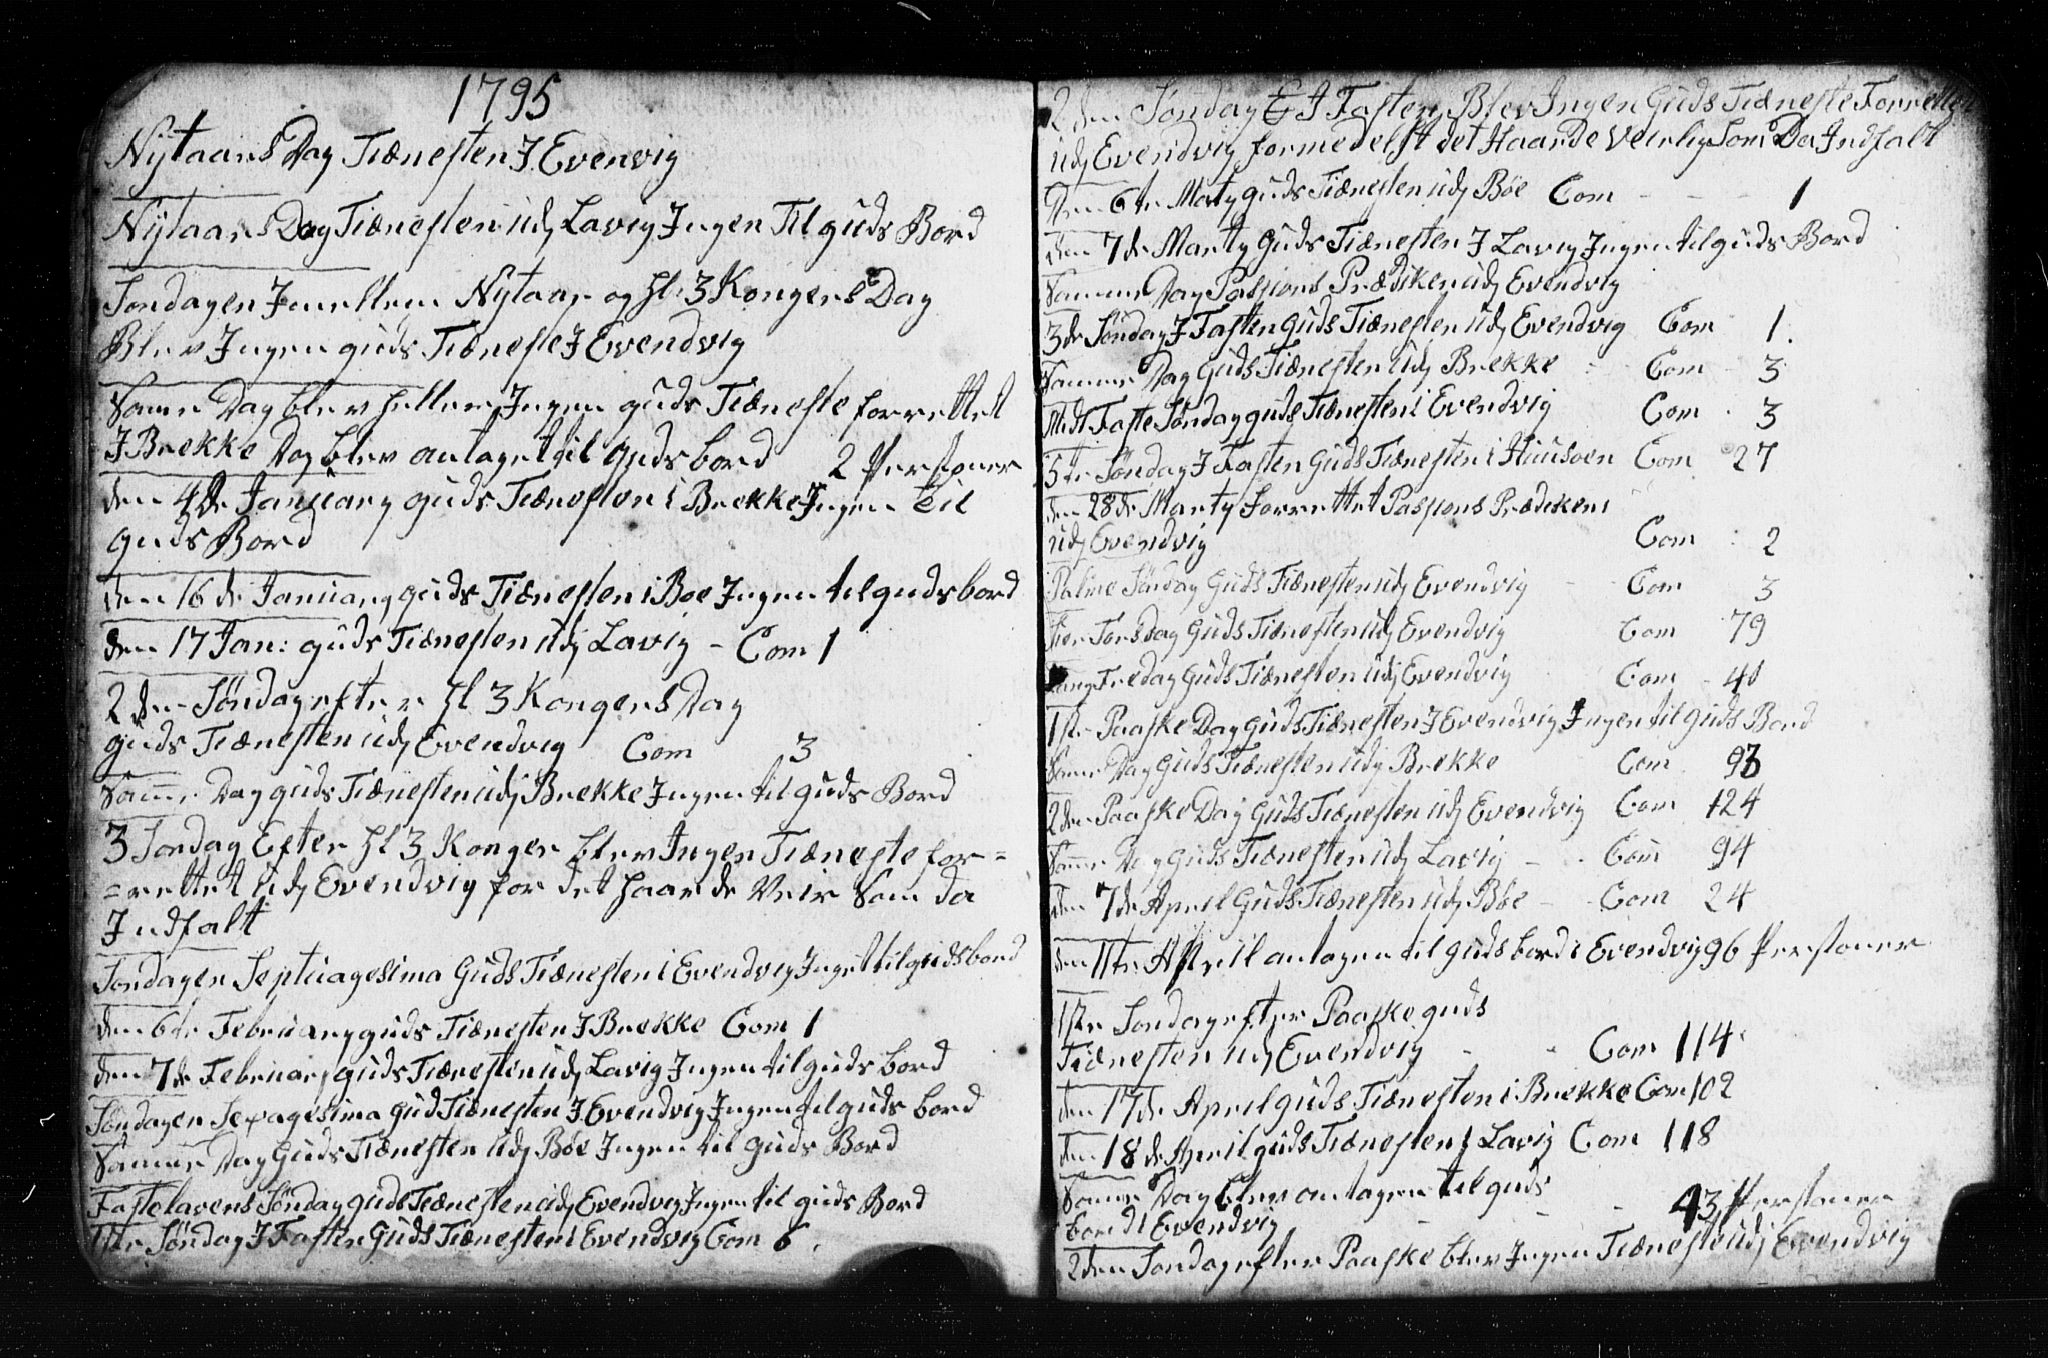 1795
Nytaars Day Tiænesten J Evenvig
Nytaars Day Tiænesten udj Lavig Jngen Til guds Bord
Søndagen Jmellem Nytaar og hl 3 Kongers Day
Blev Jngen guds Tiæneste J Evendvig
Samme Day blev heller Jngen guds Tiæneste forrettet
J Brekke Day blev antaget til guds bord 2 Personer
den 4de January guds Tiænesten i Brekke Jngen til
guds Bord
den 16 de January guds Tiænesten i Boe Jngen til guds bord
den 17 Jan: guds Tiænesten udj Lavig - Com 1
2 den Søndag efter hl 3 Kongers Day
guds Tiænesten udj Evendvig Com 3
Samme Day guds Tiænesten udj Brekke Jngen til guds Bord
3 Søndag Efter hl 3 Konger blev Jngen Tiæneste for=
=rettet udj Evendvig for det haarde Veir Som da
Jndfalt
Søndagen Septuagesima Guds Tiænesten i Evendvig Jnget til guds bord
den 6te February guds Tiænesten J Brekke Com 1
den 7de February guds Tiænesten udj Lavig Jngen til guds bord
Søndagen Sexagesima gud Tiænesten J Evendvig Jngen til guds bord
Samme Day Guds Tiænesten udj Böe Jngen til guds Bord
Fastelavens Søndag guds Tiænesten udj Evendvig Jngen til guds Bord
1ste Søndag J Fasten Guds Tiænesten i Evendvig Com 6.
2 den Søndag J Fasten Blev Jngen Guds Tiæneste Forrettet
udj Evendvig formedelst det Haarde Veirlig Som Da Jndfalt
Den 6te Marty guds Tiænesten udj Böe Com - - - 1
den 7de Marty Guds Tiænesten J Lavig Jngen til guds Bord
Samme Day Passions Prædiken udj Evendvig
3de Søndag J Fasten Guds Tiænesten udj Evendvig Com 1.
Samme Day Guds Tiænesten udj Brekke Com 3
Midt Faste Søndag guds Tiænesten i Evendvig Com 3
5te Søndag J Fasten Guds Tiænesten i Huusøen Com 27
den 28de Marty Forrettet Passions Prædiken
udj Evendvig Com : 2
Palme Søndag Guds Tiænesten udj Evendvig - - Com 3
Skier Torsdag Guds Tiænesten udj Evendvig Com 79
Lang Fredag Guds Tiænesten udj Evendvig Com 40
1ste Paaske Day Guds Tiænesten J Evendvig Jngen til Guds Bord
Samme Day Guds Tiænesten udj Brekke Com 93
2den Paaske Day Guds Tiænesten udj Evendvig Com 124
Samme Day Guds Tiænesten udj Lavig - - Com 94
den 7de April Guds Tiænesten udj Böe - - Com 24
den 11te April antagen til guds bord i Evendvig 96 Personer
1ste Søndag efter Paaske guds
Tiænesten udj Evendvig - - Com 114
den 17de April guds Tiænesten i Brekke Com 102
den 18 de April guds Tiænesten J Lavig Com 118
Samme Day blev antagen til guds
bord i Evendvig - - - 43 Personer
2den Søndag efter Paaske blev Jngen Tiæneste udj Evendvig